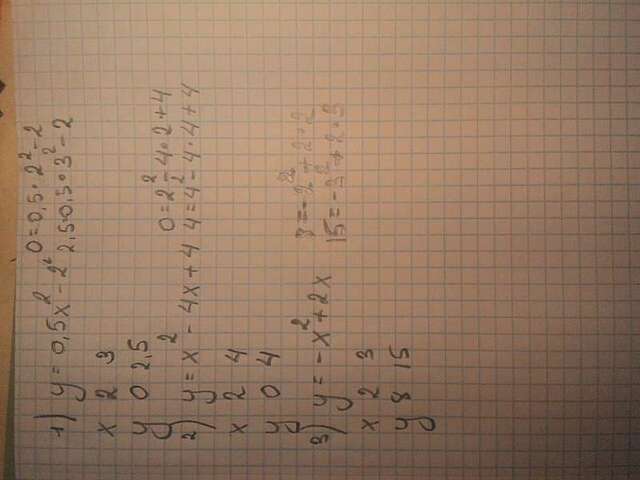 1) y = 0,5x² - 2² 0=0,5·2²-2
2,5=0,5·3²-2
x 2 3
y 0 2,5
2) y = x² - 4x + 4 0=2²-4·2+4
4=4²-4·4+4
x 2 4
y 0 4
3) y = -x² + 2x =-2²+2·2
15=-3²+2·3
x 2 3
y 8 15